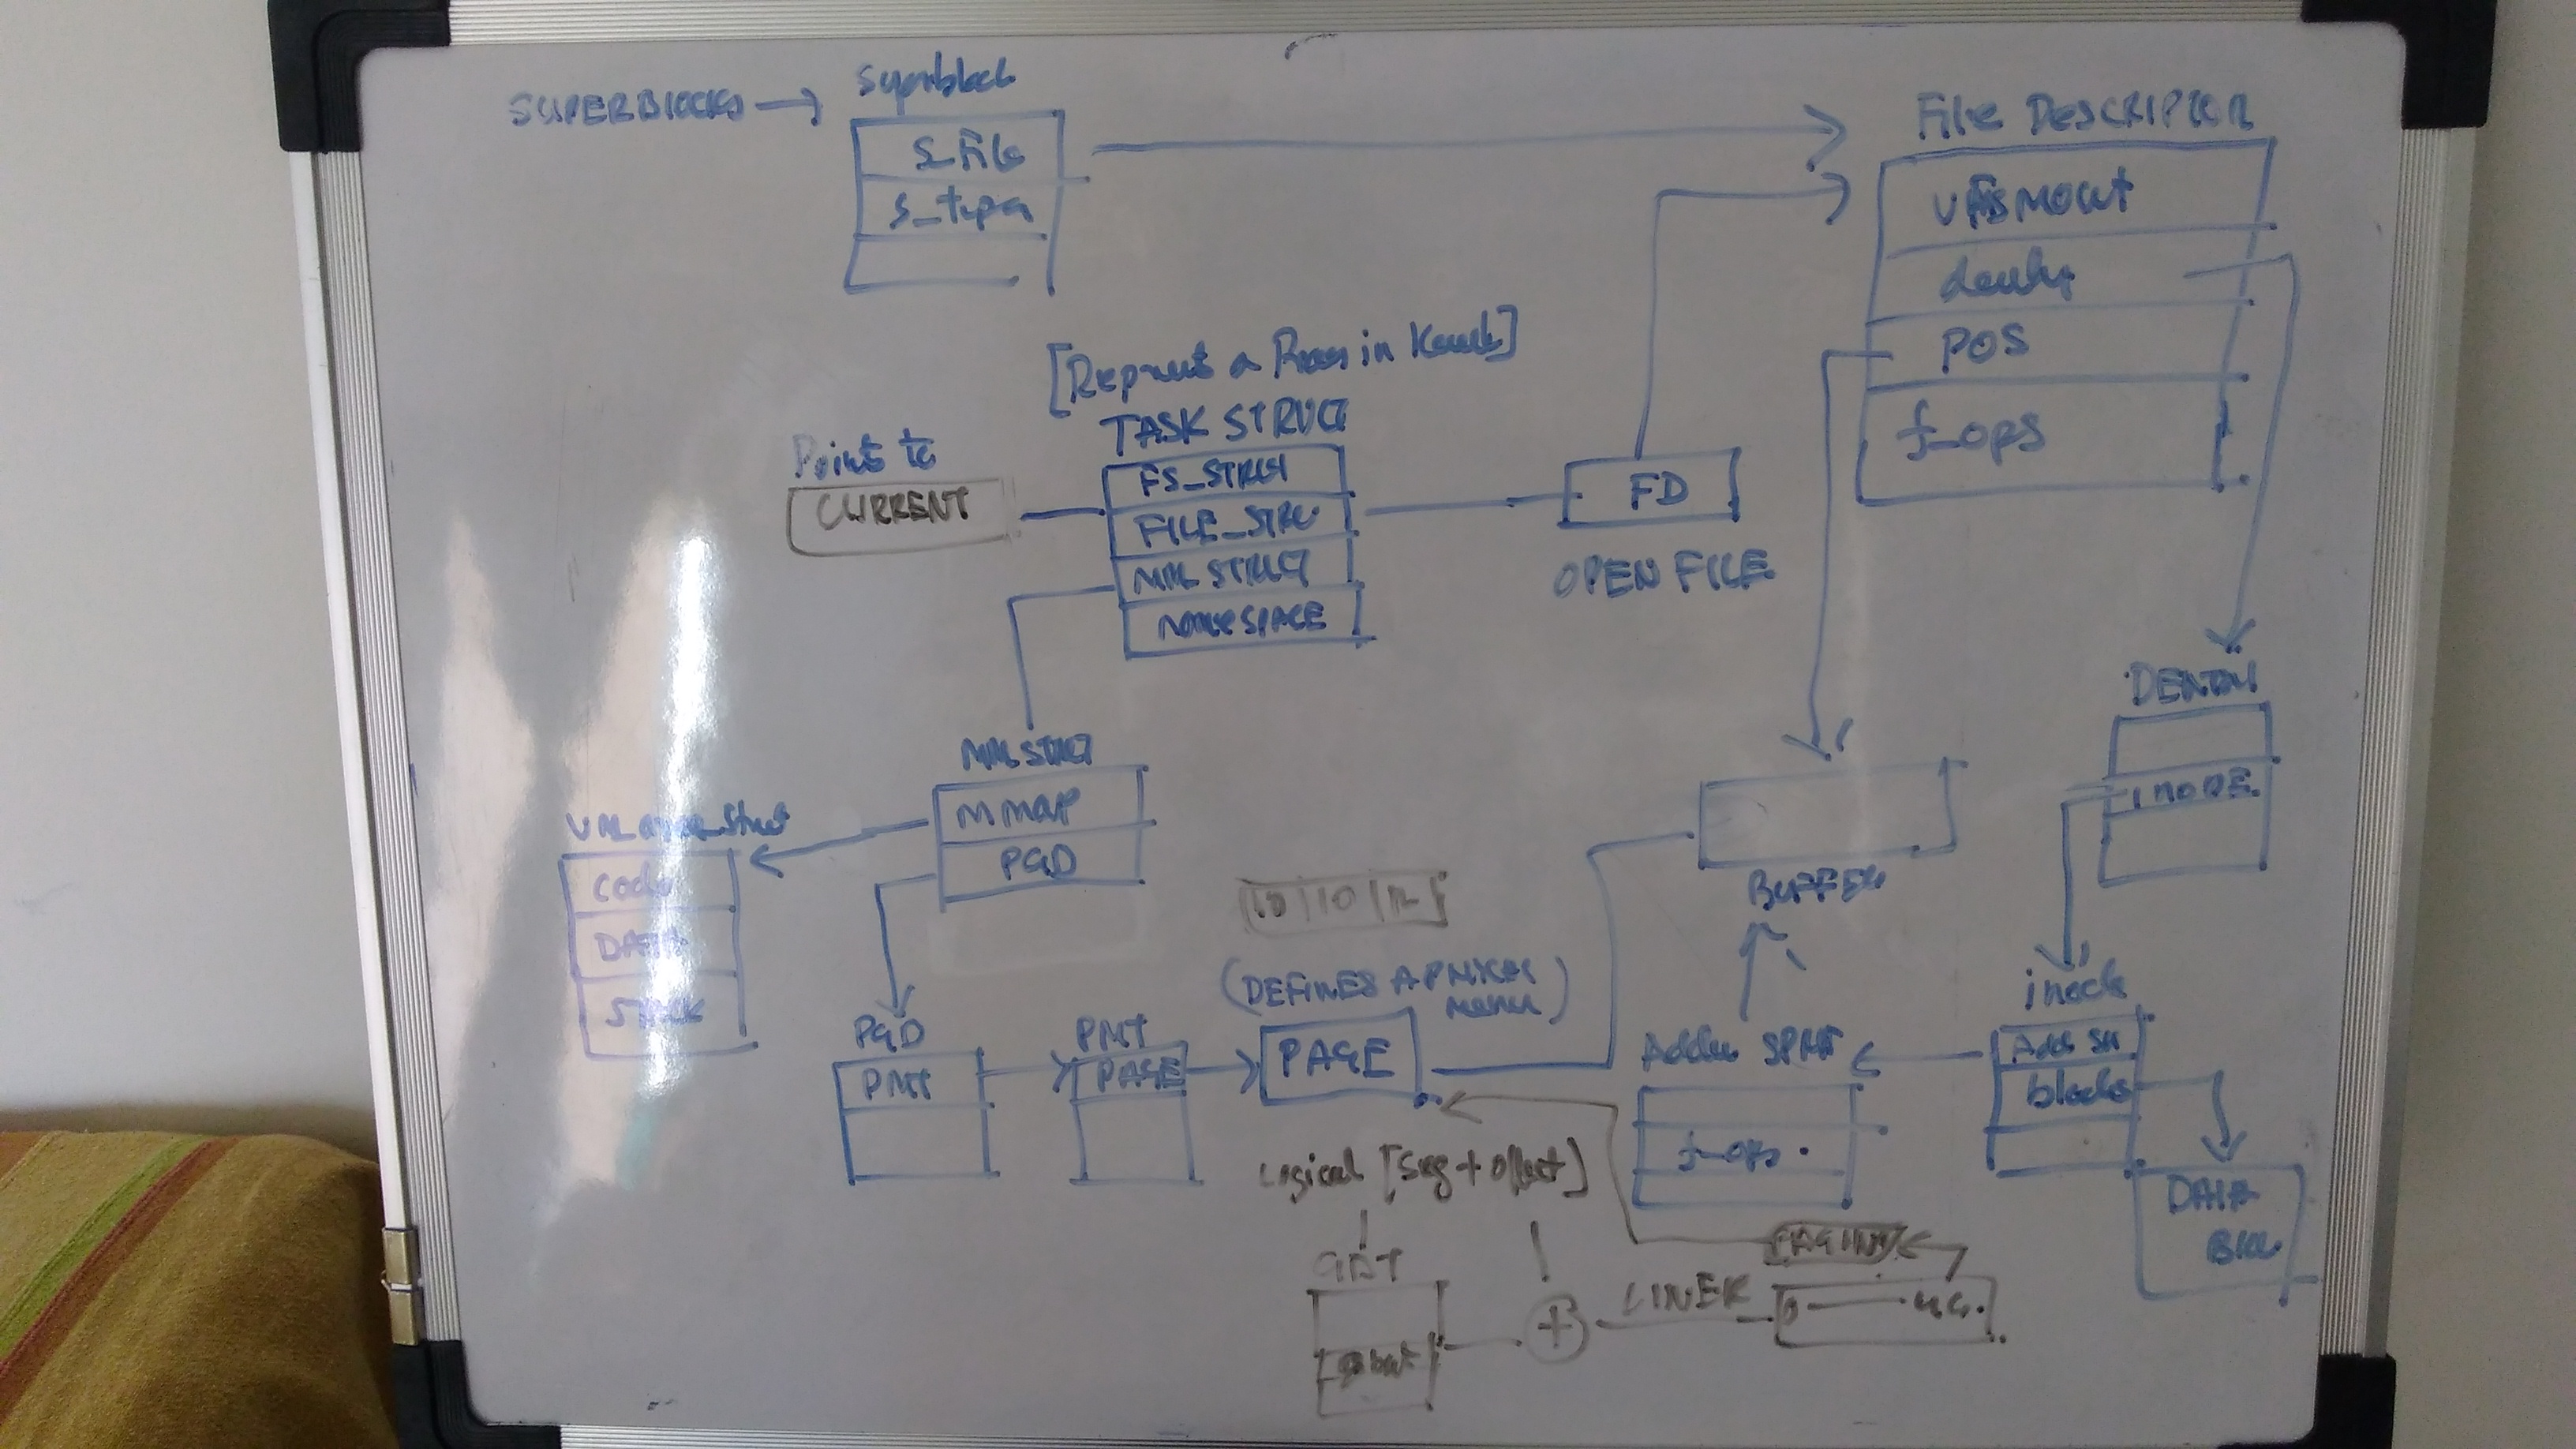 SUPERBLOCKS →
Superblock
S_File
S_type
File DESCRIPTOR
VFSMOUNT
dentry
POS
f_ops
[Represent a Process in Kernel]
TASK STRUCT
Points to
CURRENT
FS_STRUCT
FILE_STRU
MM STRUCT
NAMESPACE
FD
OPEN FILE
MM STRUCT
MMAP
PGD
VM_area_struct
Code
DATA
STACK
BUFFER
DENTRY
INODE
10 | 10 | 12
(DEFINES A PHYSICAL
PGD
PMT
PMT
PAGE
PAGE
inode
blocks
DATA
f_ops
Logical [Seg + Offset]
GDT
+
LINER
PAGING
0 — 4G.